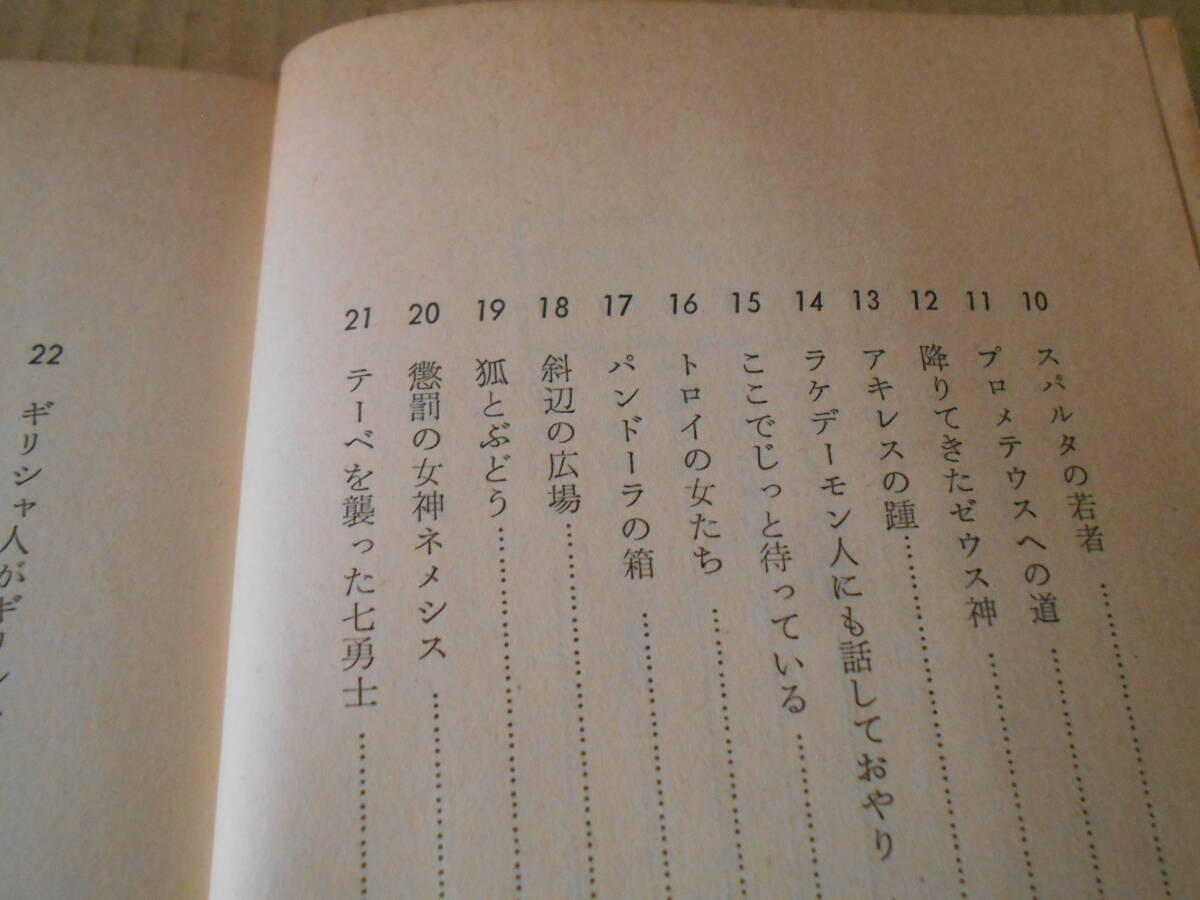 10 スパルタの若者
11 プロメテウスへの道
12 降りてきたゼウス神
13 アキレスの踵
14 ラケデーモン人にも話しておやり
15 ここでじっと待っている
16 トロイの女たち
17 パンドーラの箱
18 斜辺の広場
19 狐とぶどう
20 懲罰の女神ネメシス
21 テーベを襲った七勇士
22 ギリシャ人がギリシ